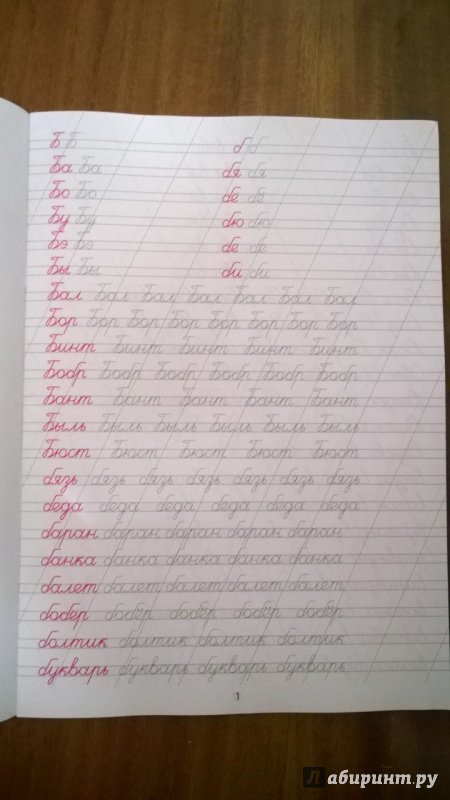 Б Б б б
Ба Ба бя бя
Бо Бо бё бё
Бу Бу бю бю
Бэ Бэ бе бе
Бы Бы би би
Бал Бал Бал Бал Бал Бал Бал
Бор Бор Бор Бор Бор Бор Бор Бор
Бинт Бинт Бинт Бинт Бинт
Бобр Бобр Бобр Бобр Бобр Бобр
Бант Бант Бант Бант Бант
Быль Быль Быль Быль Быль Быль
Бюст Бюст Бюст Бюст Бюст
бязь бязь бязь бязь бязь бязь бязь
беда беда беда беда беда беда
баран баран баран баран баран
банка банка банка банка банка
балет балет балет балет балет
бобёр бобёр бобёр бобёр бобёр
болтик болтик болтик болтик
букварь букварь букварь букварь
1
Лабиринт.ру